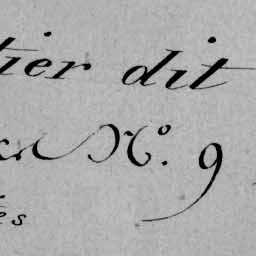 tier dit
N.º 9
es